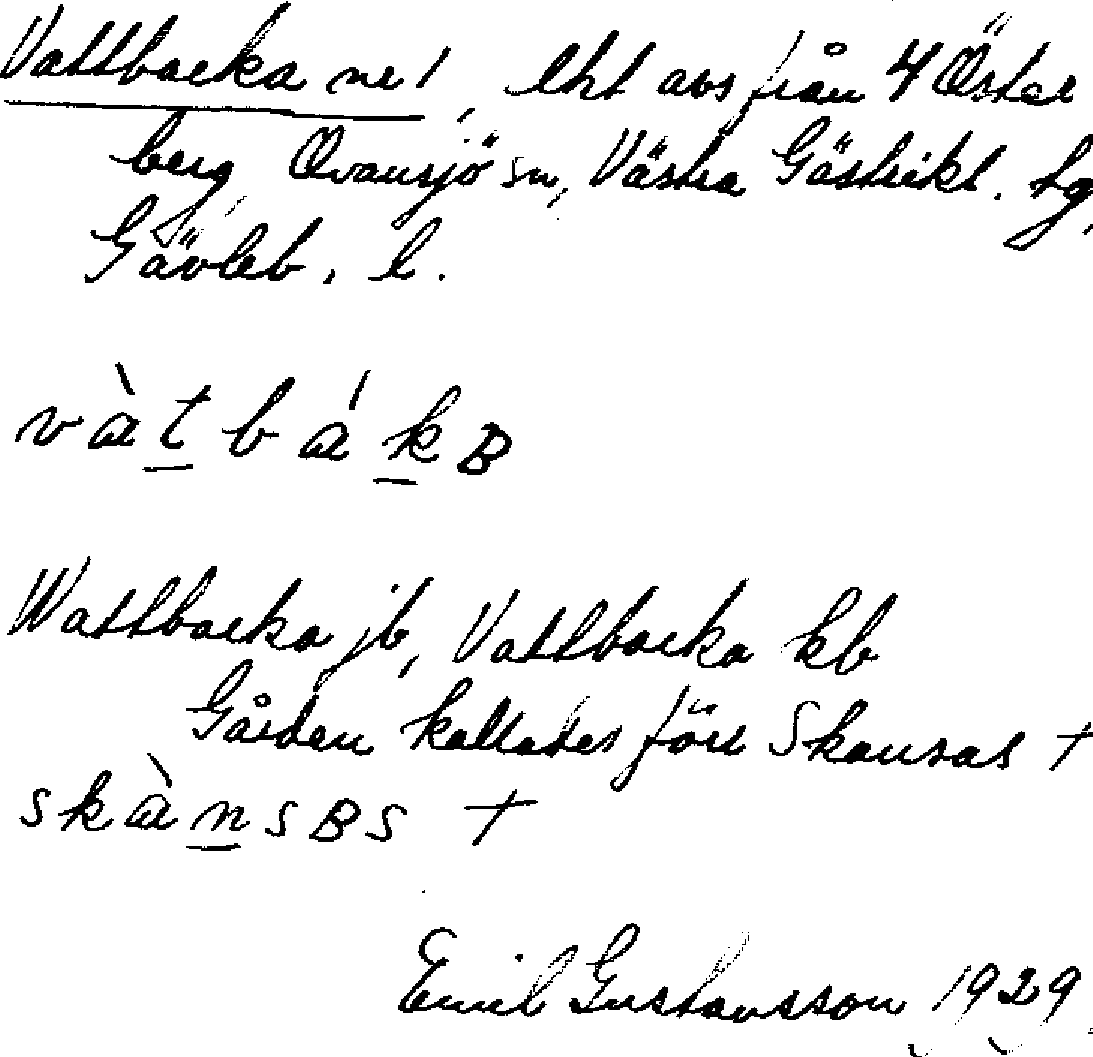 Vattbacka nr 1, lht avs från 4 Öster
berg, Ovansjö sn, Västra Gästrikl. tg,
Gävleb. l.
vàt̲bák̲ʙ
Wattbacka jb, Vattbacka kb
Gården kallades förr Skansas +
skàn̲sʙs +
Emil Gustavsson 1929